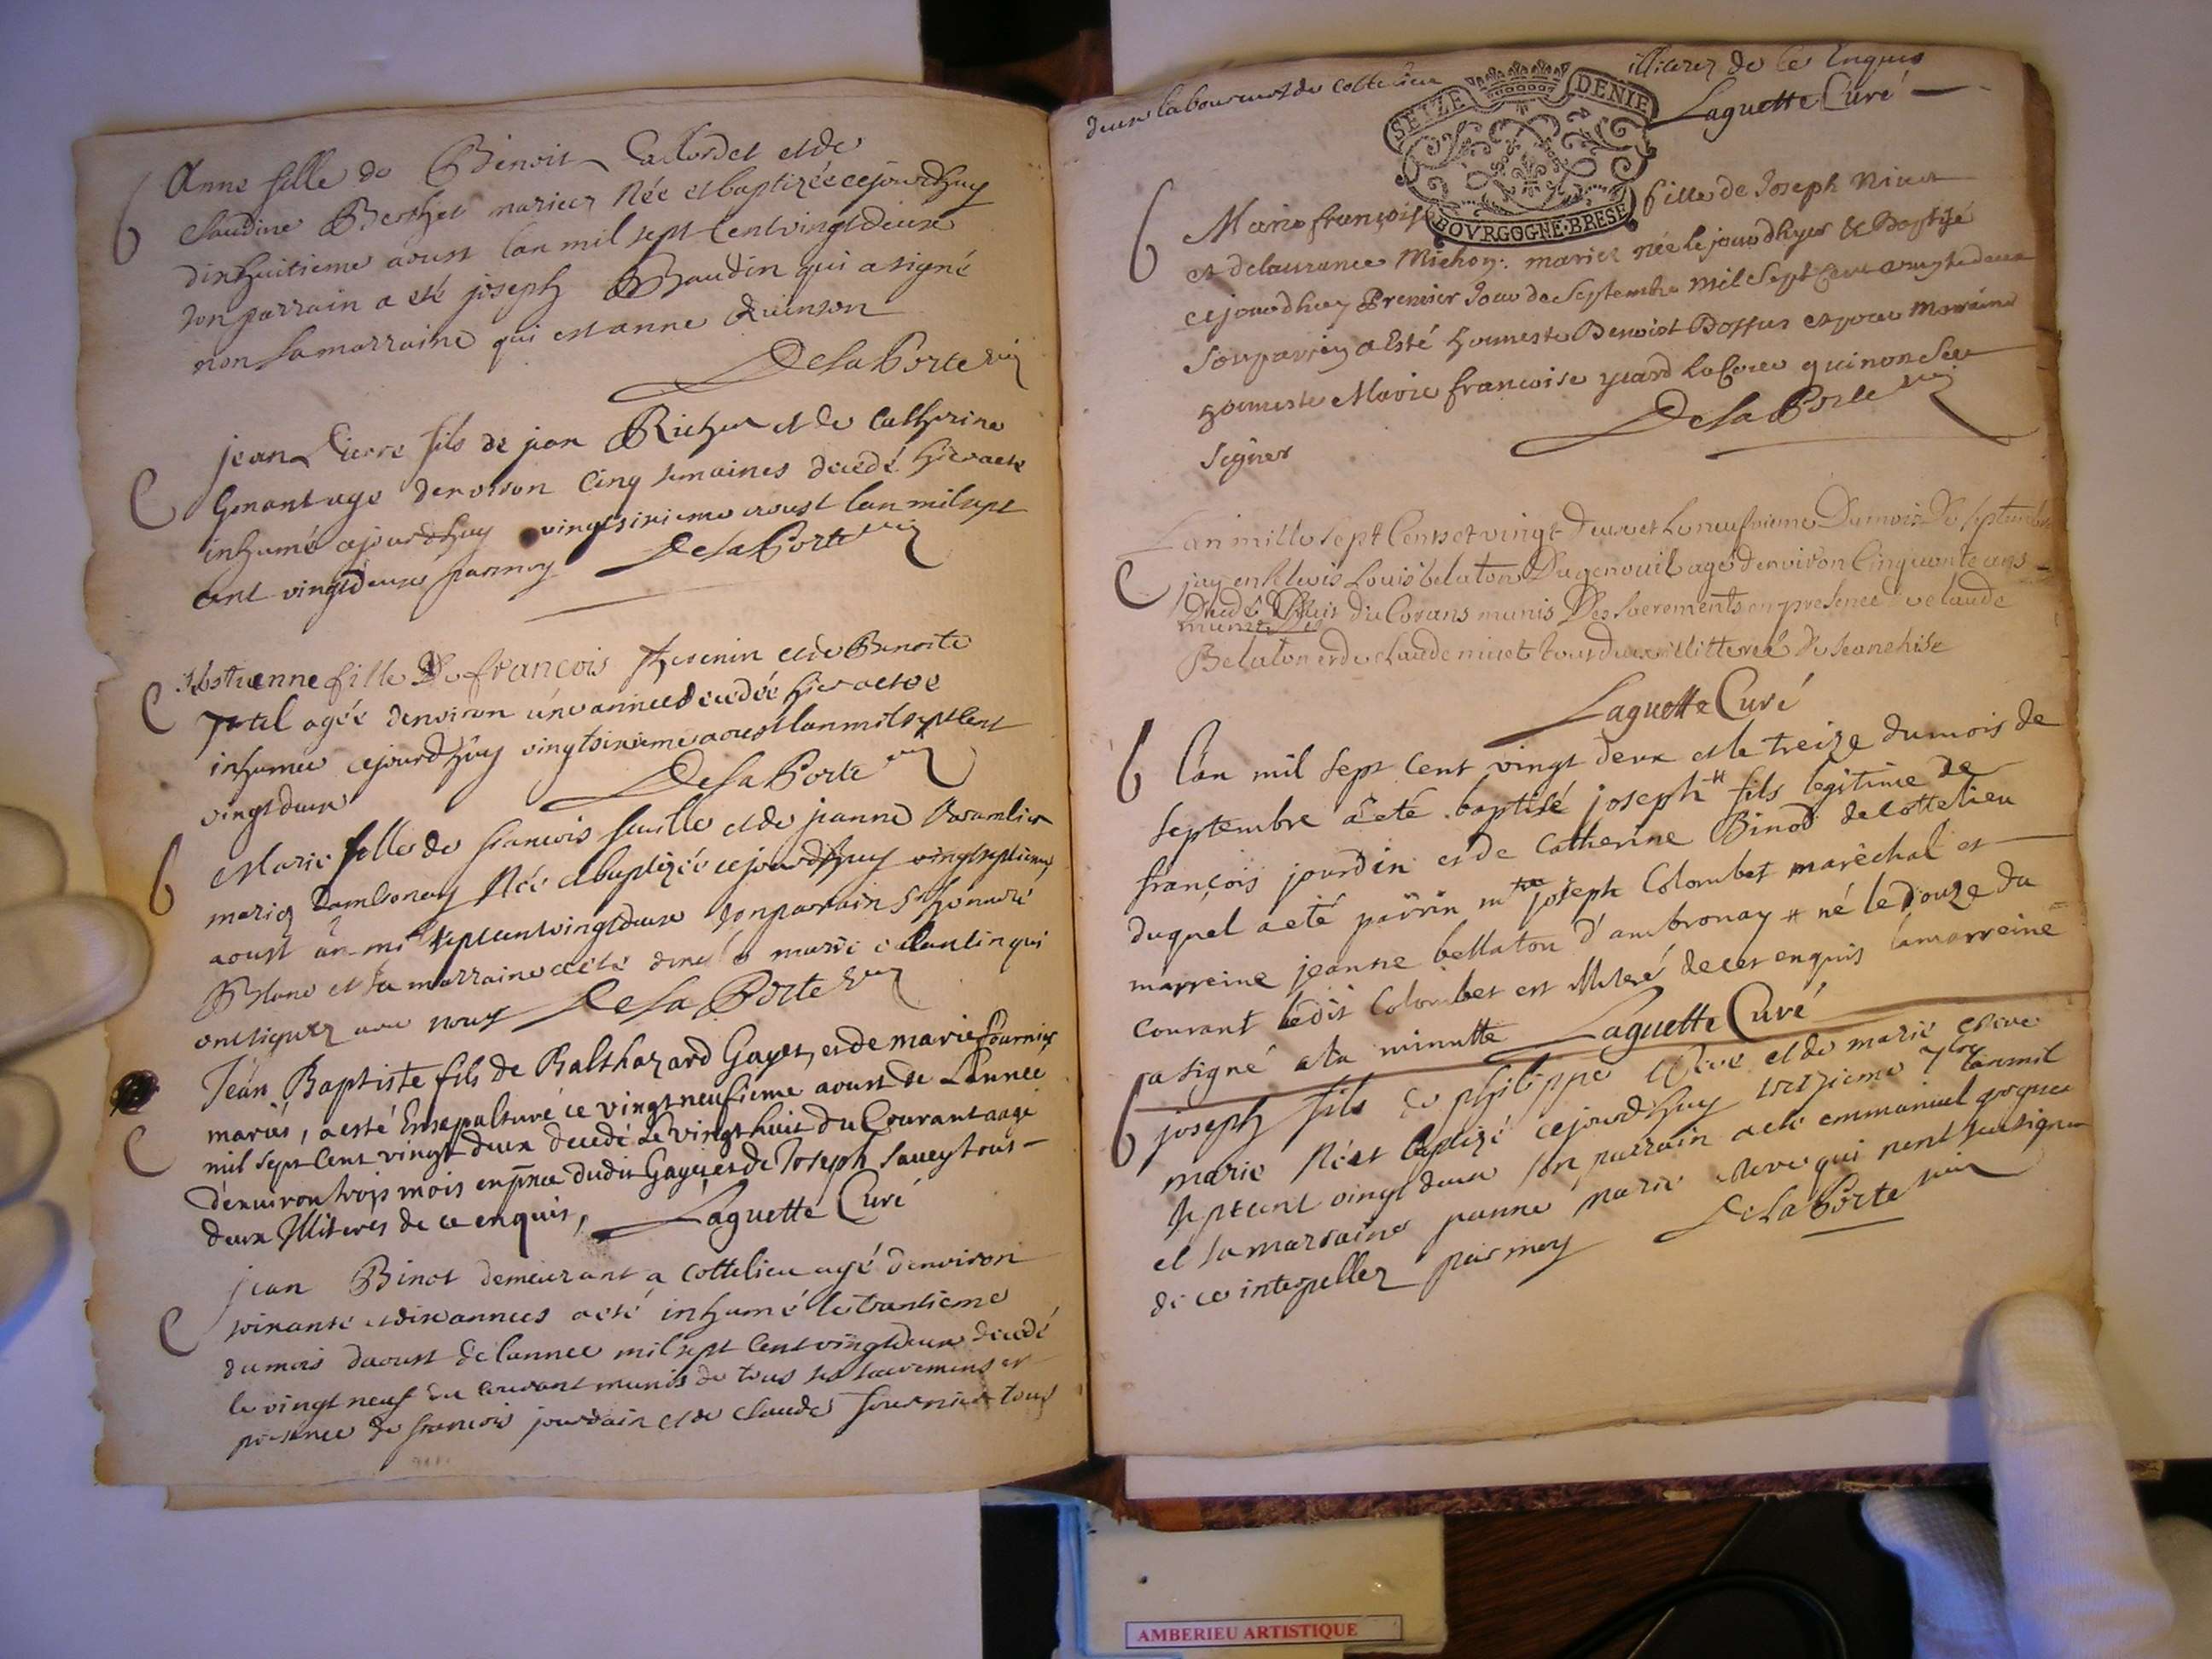 Anne fille de Benoit Lallordet et de
Claudine Berthet mariez Née et baptizée cejourdhuy
dixhuitieme aoust lan mil sept Cent vingt deux
son parrain a eté joseph Baudin qui a signé
non sa marraine qui est anne Quinson
De La Porte vic
jean Pierre fils de jean Richer et de Catherine
agé denviron Cinq semaines decedé hier a eté
inhumé cejourdhuy vingtsixieme aoust lan mil sept
Cent vingtdeux par moy De La Porte vic
Estienne fille De françois Thevenin et de Benoite
agée denviron une année decedée hier a esté
inhumée cejourdhuy vingtsixieme aoust lan mil sept Cent
vingt deux De La Porte vic
Marie fille de francois et de jeanne
mariez Née et baptizée cejourdhuy vingtseptieme
aoust an mil sept cent vingtdeux son parrain St honnoré
Blanc et sa marraine a eté marie qui
ont signez avec nous De La Porte vic
Jean Baptiste fils de Balthazard Gayet, et de marie fournier
mariés, a esté Ensepulturé ce vingtneufieme aoust de Lannée
mil sept Cent vingt deux decedé Le vingt huit du Courant aagé
denviron trois mois en pnce dudit Gayet et de Joseph Savey tous
deux Illiteres de ce enquis, Laguette Curé
jean Binot demeurant a Cottelieu agé denviron
soixante et dix années a eté inhumé le trantieme
du mois daoust de lannée mil sept Cent vingtdeux decedé
le vingt neuf du courant munis de tous ses sacremens et
présence de francois jourdain et de claude fournier tous
deux laboureurs de Cottelieu illiterez de ce Enquis
Laguette Curé
SEIZE DENIE
BOVRGOGNE·BRESE
Marie françoise fille de Joseph Nivet
et de laurance Michon mariez née le jourdhyer & Baptizé
cejourdhuy Premier Jour de Septembre Mil Sept Cent vingt deux
Son parrein a Esté honneste Benoist Bossus et pour Marraine
honneste Marie francoise yvard qui nont Seu
Signer De La Porte vic
Lan mille sept Cents et vingt deux et le neufvieme Du mois De septembre
jay enseveli Louis belaton Du genouil agé denviron Cinquante ans
decedé Le huit du Corans munis Des sacrements en presence de claude
Belaton et de claude nivet tous deux illitterés De
Laguette Curé
L'an mil sept cent vingt deux et le treize du mois de
septembre a eté baptisé joseph # fils legitime de
françois jourdin et de Catherine Binod de Cottelieu
duquel a eté parrin mtre joseph Colombet maréchal et
marreine jeanne bellaton d'ambronay # né le douze du
courant ledit Colombet est illiteré de cet enquis la marreine
a signé a la minutte Laguette Curé
joseph fils de philippe Cleve et de marie Cleve
mariez Né et baptizé cejourdhuy treizieme 7bre lan mil
sept cent vingt deux son parrain a eté emmanuel
et sa marraine jeanne marie Cleve qui nont seu signer
de ce interpellez par moy De La Porte vic
AMBERIEU ARTISTIQUE